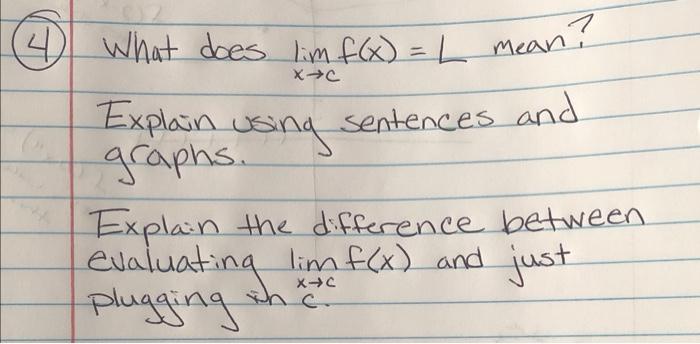 4 What does lim f(x) = L mean?
x→c
Explain using sentences and
graphs.
Explain the difference between
evaluating lim f(x) and just
x→c
plugging in c.